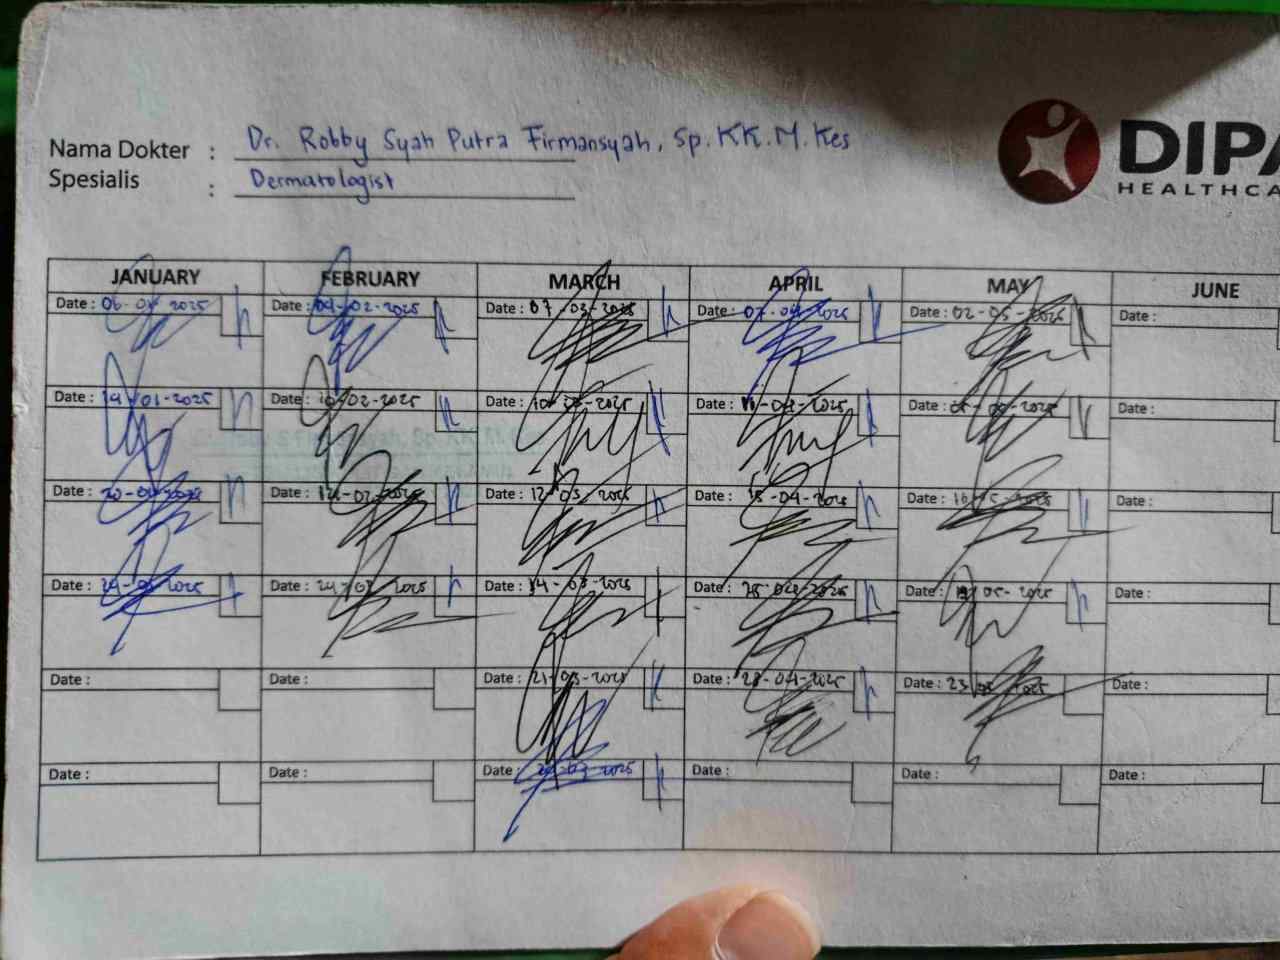 Nama Dokter : Dr. Robby Syah Putra Firmansyah, Sp.KK.M.Kes
Spesialis : Dermatologist
DIPA
HEALTHCA
JANUARY FEBRUARY MARCH APRIL MAY JUNE
Date : 06-01-2025 Date : 04-02-2025 Date : 07-03-2025 Date : 07-04-2025 Date : 02-05-2025 Date :
Date : 14-01-2025 Date : 10-02-2025 Date : 10-03-2025 Date : 11-04-2025 Date : 2025 Date :
Date : 20-01-2025 Date : 14-02-2025 Date : 12-03-2025 Date : 15-04-2025 Date : 16-05-2025 Date :
Date : 24-01-2025 Date : 24-02-2025 Date : 14-03-2025 Date : 25-04-2025 Date : 19-05-2025 Date :
Date : Date : Date : 21-03-2025 Date : 28-04-2025 Date : 23-05-2025 Date :
Date : Date : Date : 03-2025 Date : Date : Date :